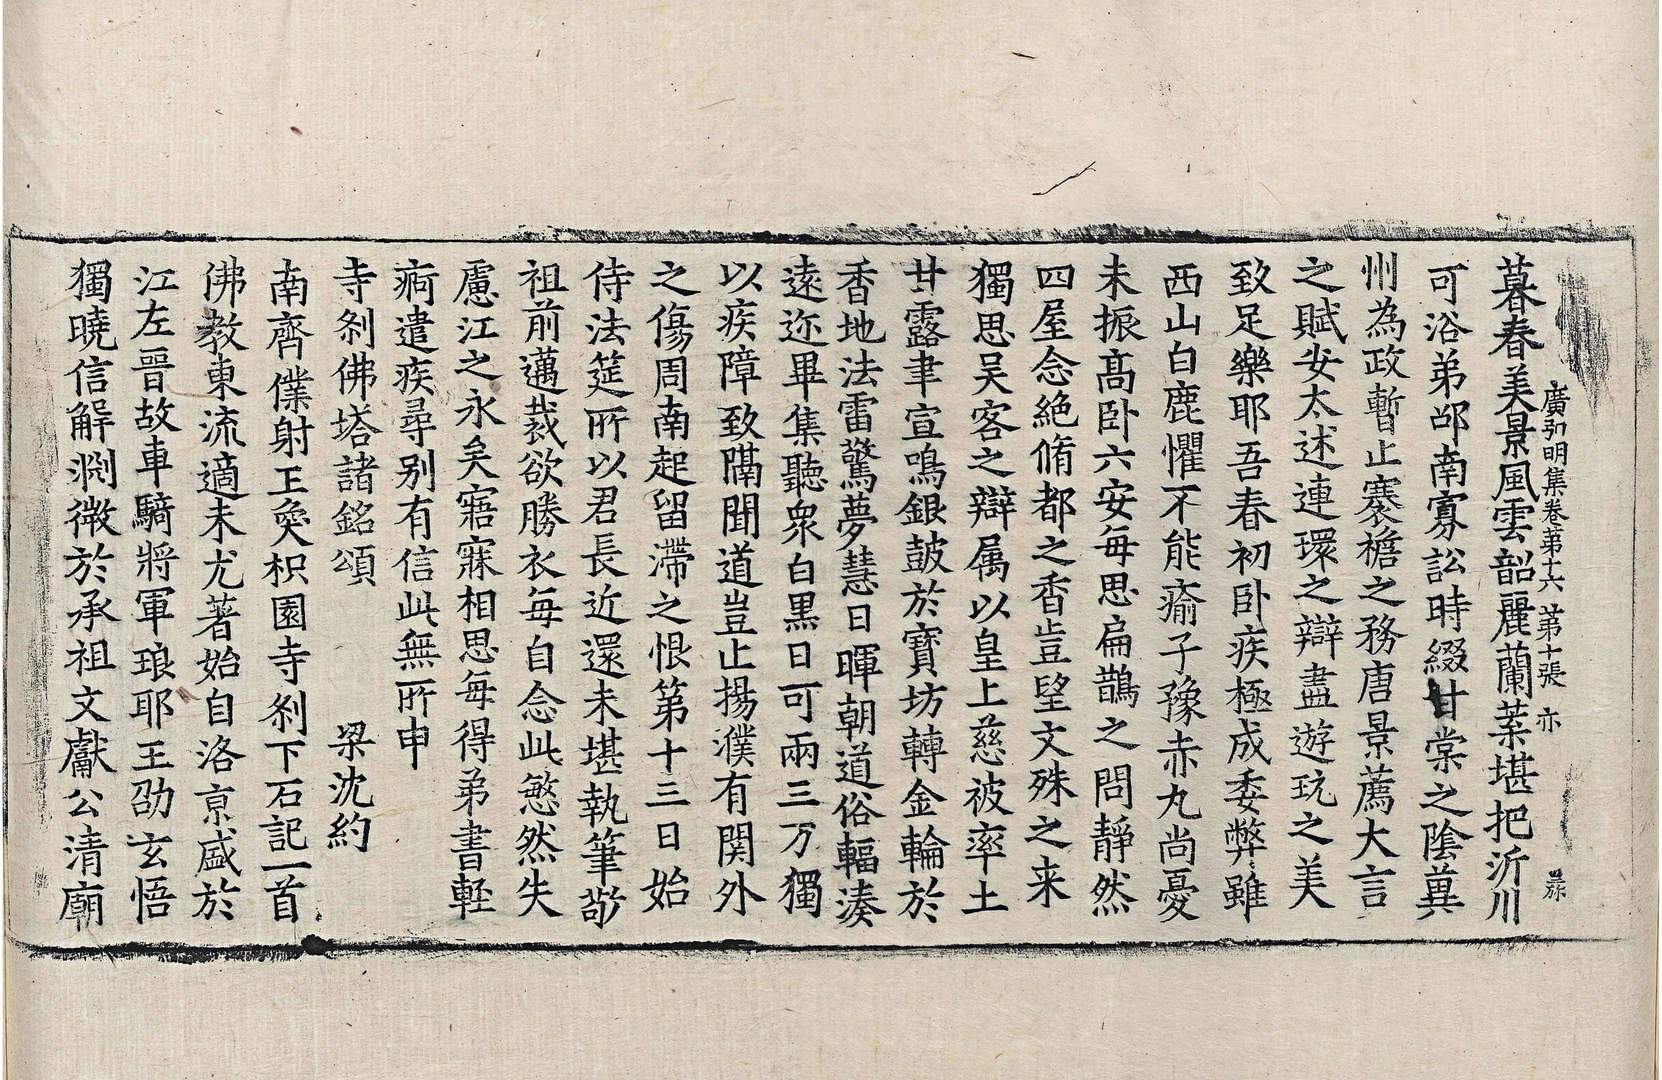 廣弘明集卷第十六 第十張 亦
暮春美景風雲韶麗蘭葉堪把沂川
可浴弟邵南寡訟時綴甘棠之陰冀
州為政暫止褰襜之務唐景薦大言
之賦安太述連環之辯盡遊玩之美
致足樂耶吾春初卧疾極成委弊雖
西山白鹿懼不能瘉子豫赤丸尚憂
未振髙卧六安每思扁鵲之問靜然
四屋念絶脩都之香豈望文殊之来
獨思吴客之辯属以皇上慈被率土
甘露聿宣鳴銀鼓於寳坊轉金輪於
香地法雷驚夢慧日暉朝道俗輻湊
遠迩畢集聽衆白黒日可兩三万獨
以疾障致隔聞道豈止揚濮有関外
之傷周南起留滯之恨第十三日始
侍法筵所以君長近還未堪執筆敬
祖前邁裁欲勝衣每自念此慜然失
慮江之永矣寤寐相思每得弟書輕
痾遣疾尋别有信此無所申
寺刹佛塔諸銘頌 梁沈約
南齊僕射王奐枳園寺刹下石記一首
佛教東流適未尤著始自洛亰盛於
江左晉故車騎將軍琅耶王劭玄悟
獨曉信解淵微於承祖文獻公清廟